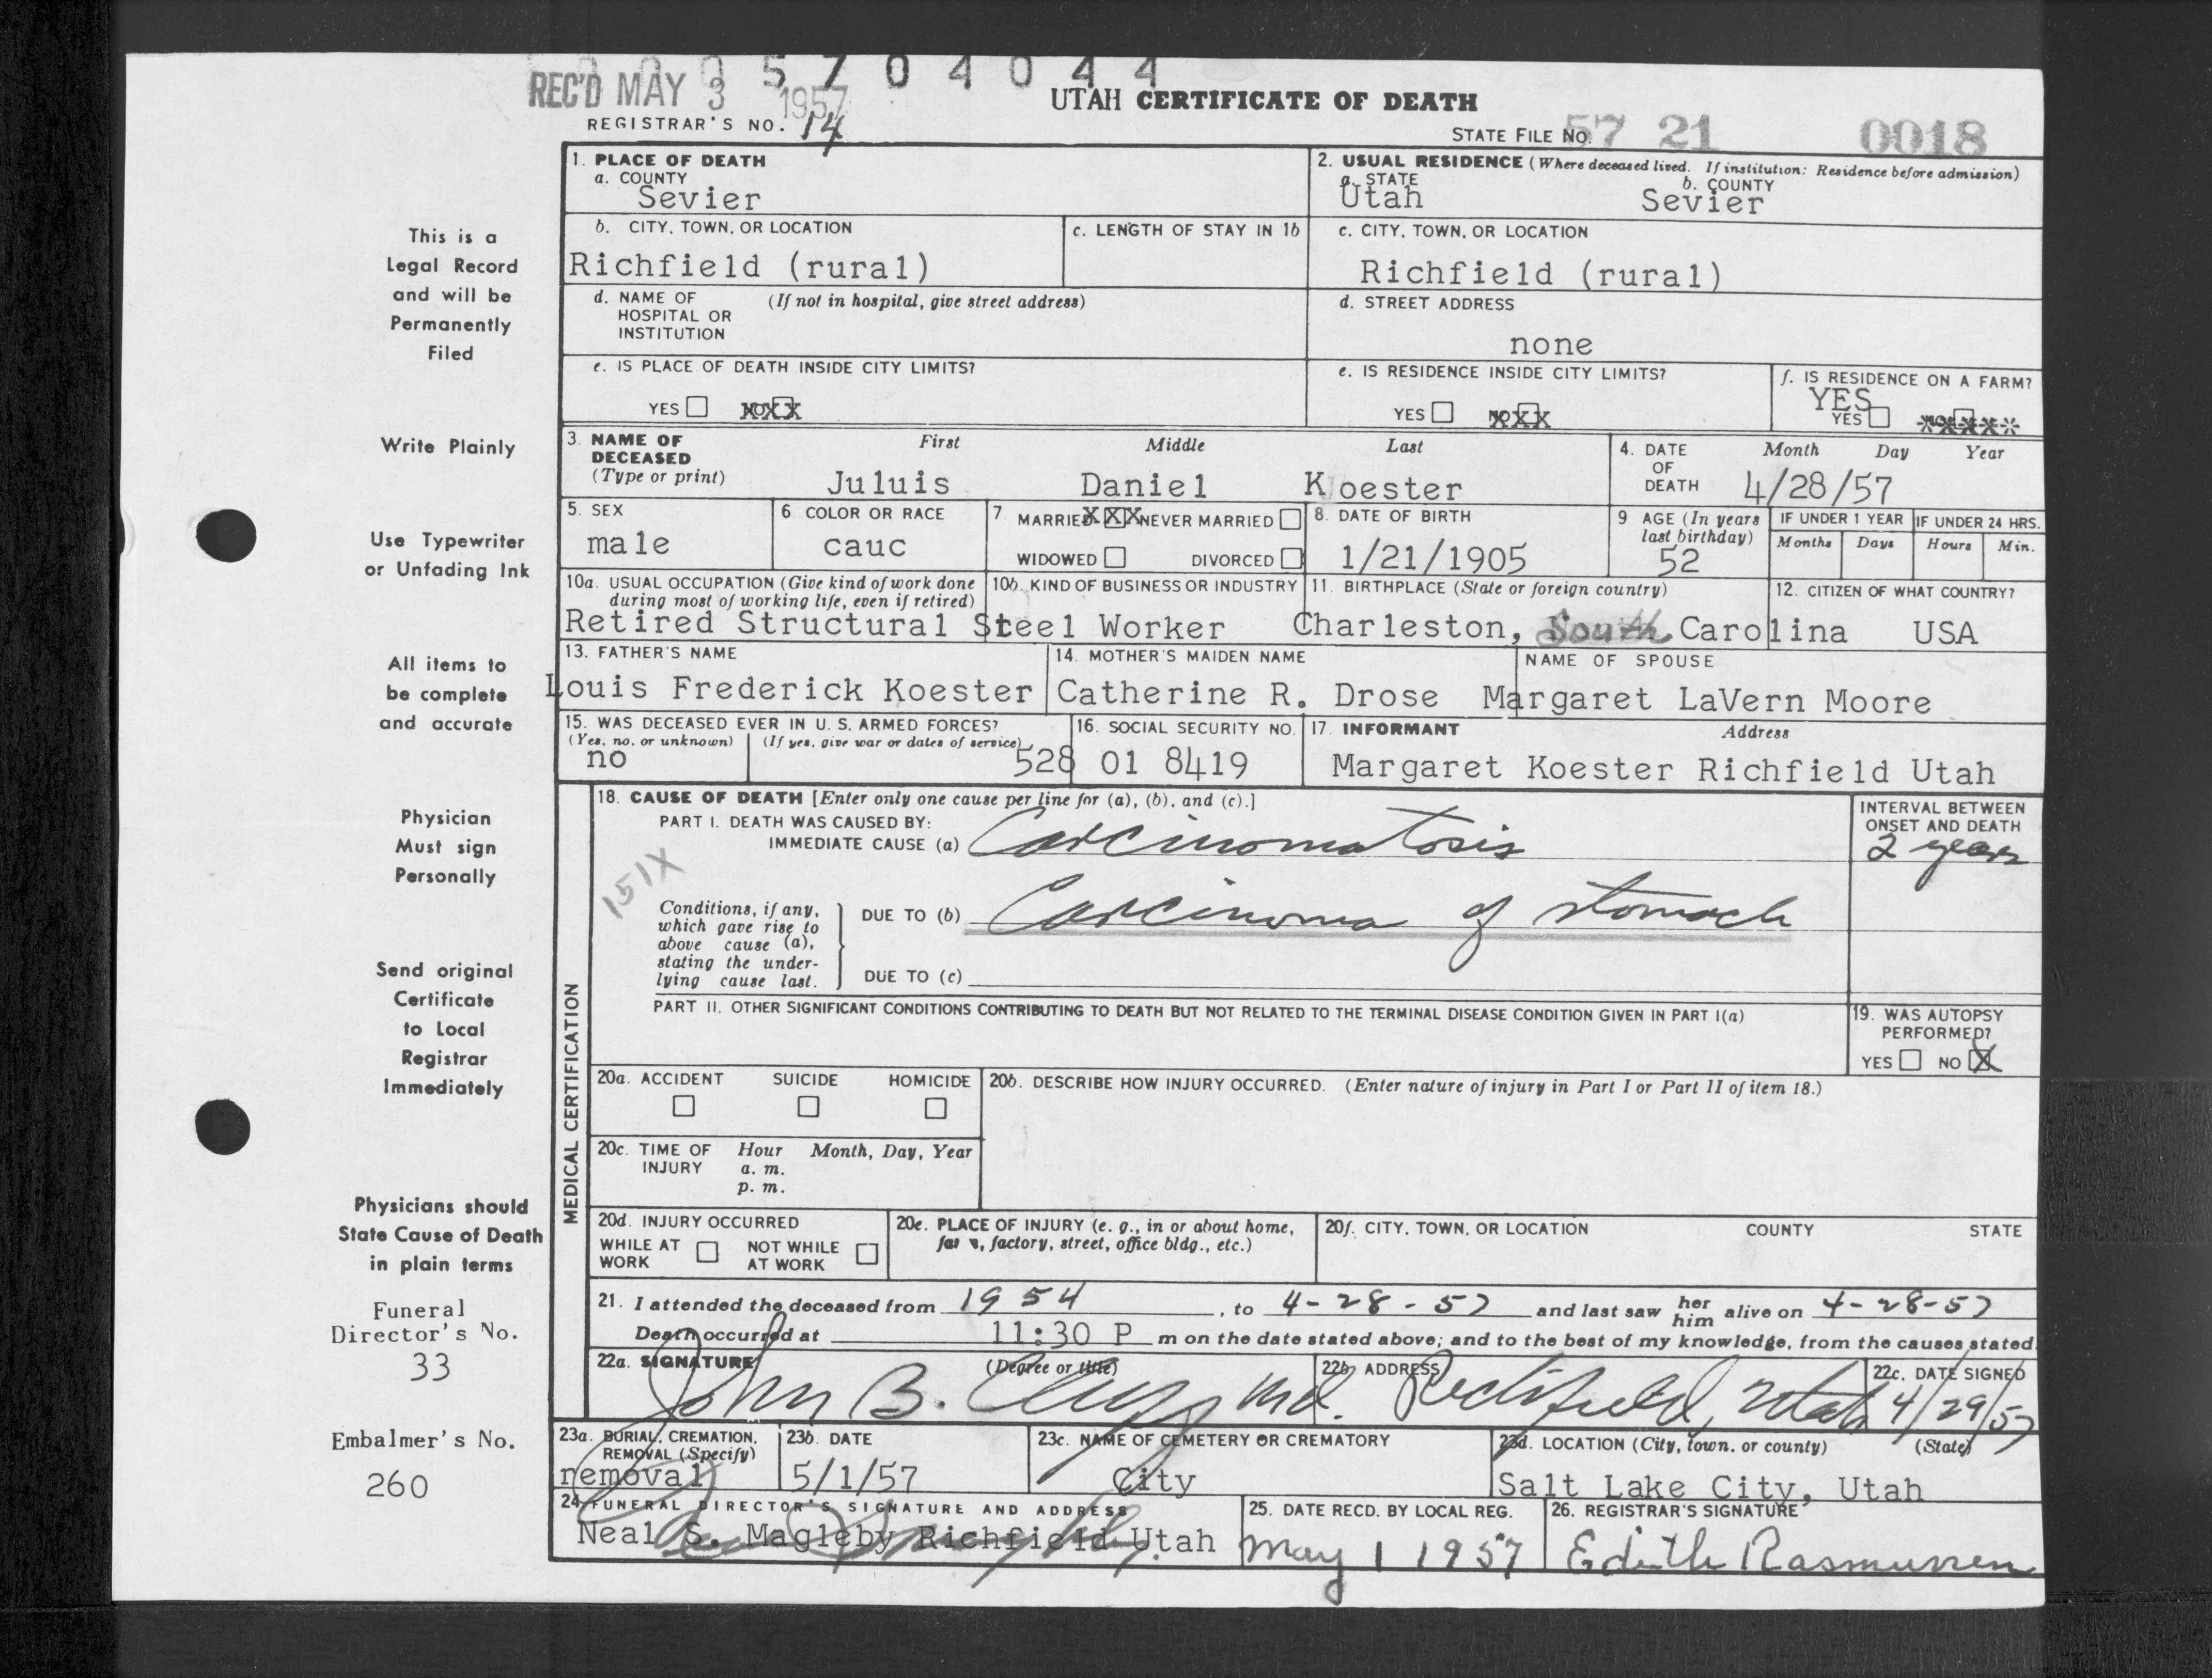 5 7 0 4 0 4 4
REC'D MAY 3 1957
UTAH CERTIFICATE OF DEATH
REGISTRAR'S NO. 14
STATE FILE NO. 57 21 0018
This is a
Legal Record
and will be
Permanently
Filed
Write Plainly
Use Typewriter
or Unfading Ink
All items to
be complete
and accurate
Physician
Must sign
Personally
Send original
Certificate
to Local
Registrar
Immediately
Physicians should
State Cause of Death
in plain terms
Funeral
Director's No.
33
Embalmer's No.
260
1. PLACE OF DEATH
a. COUNTY
Sevier
2. USUAL RESIDENCE (Where deceased lived. If institution: Residence before admission)
a. STATE b. COUNTY
Utah Sevier
b. CITY, TOWN, OR LOCATION
Richfield (rural)
c. LENGTH OF STAY IN 1b
c. CITY, TOWN, OR LOCATION
Richfield (rural)
d. NAME OF (If not in hospital, give street address)
HOSPITAL OR
INSTITUTION
d. STREET ADDRESS
none
e. IS PLACE OF DEATH INSIDE CITY LIMITS?
YES NO XXX
e. IS RESIDENCE INSIDE CITY LIMITS?
YES NO XXX
f. IS RESIDENCE ON A FARM?
YES
YES NO
3. NAME OF DECEASED
(Type or print)
First Middle Last
Juluis Daniel Koester
4. DATE OF DEATH Month Day Year
4/28/57
5. SEX
male
6. COLOR OR RACE
cauc
7 MARRIED XXX NEVER MARRIED
WIDOWED DIVORCED
8. DATE OF BIRTH
1/21/1905
9 AGE (In years
last birthday)
52
IF UNDER 1 YEAR IF UNDER 24 HRS.
Months Days Hours Min.
10a. USUAL OCCUPATION (Give kind of work done
during most of working life, even if retired)
10b. KIND OF BUSINESS OR INDUSTRY
Retired Structural Steel Worker
11. BIRTHPLACE (State or foreign country)
Charleston, South Carolina
12. CITIZEN OF WHAT COUNTRY?
USA
13. FATHER'S NAME
Louis Frederick Koester
14. MOTHER'S MAIDEN NAME
Catherine R. Drose
NAME OF SPOUSE
Margaret LaVern Moore
15. WAS DECEASED EVER IN U. S. ARMED FORCES?
(Yes, no, or unknown) (If yes, give war or dates of service)
no
16. SOCIAL SECURITY NO.
528 01 8419
17. INFORMANT Address
Margaret Koester Richfield Utah
MEDICAL CERTIFICATION
18. CAUSE OF DEATH [Enter only one cause per line for (a), (b), and (c).]
PART I. DEATH WAS CAUSED BY:
IMMEDIATE CAUSE (a) Carcinomatosis
INTERVAL BETWEEN
ONSET AND DEATH
2 years
151X
Conditions, if any,
which gave rise to
above cause (a),
stating the under-
lying cause last.
DUE TO (b) Carcinoma of stomach
DUE TO (c)
PART II. OTHER SIGNIFICANT CONDITIONS CONTRIBUTING TO DEATH BUT NOT RELATED TO THE TERMINAL DISEASE CONDITION GIVEN IN PART I(a)
19. WAS AUTOPSY
PERFORMED?
YES NO X
20a. ACCIDENT SUICIDE HOMICIDE
20b. DESCRIBE HOW INJURY OCCURRED. (Enter nature of injury in Part I or Part II of item 18.)
20c. TIME OF INJURY Hour Month, Day, Year
a. m.
p. m.
20d. INJURY OCCURRED
WHILE AT WORK NOT WHILE AT WORK
20e. PLACE OF INJURY (e. g., in or about home,
factory, street, office bldg., etc.)
20f. CITY, TOWN, OR LOCATION COUNTY STATE
21. I attended the deceased from 1954, to 4-28-57 and last saw her him alive on 4-28-57
Death occurred at 11:30 P m on the date stated above; and to the best of my knowledge, from the causes stated.
22a. SIGNATURE (Degree or title)
John B. Md.
22b. ADDRESS
Richfield, Utah
22c. DATE SIGNED
4/29/57
23a. BURIAL, CREMATION,
REMOVAL (Specify)
removal
23b. DATE
5/1/57
23c. NAME OF CEMETERY OR CREMATORY
City
23d. LOCATION (City, town, or county) (State)
Salt Lake City, Utah
24. FUNERAL DIRECTOR'S SIGNATURE AND ADDRESS
Neal S. Magleby Richfield Utah
25. DATE RECD. BY LOCAL REG.
May 1 1957
26. REGISTRAR'S SIGNATURE
Edith Rasmussen